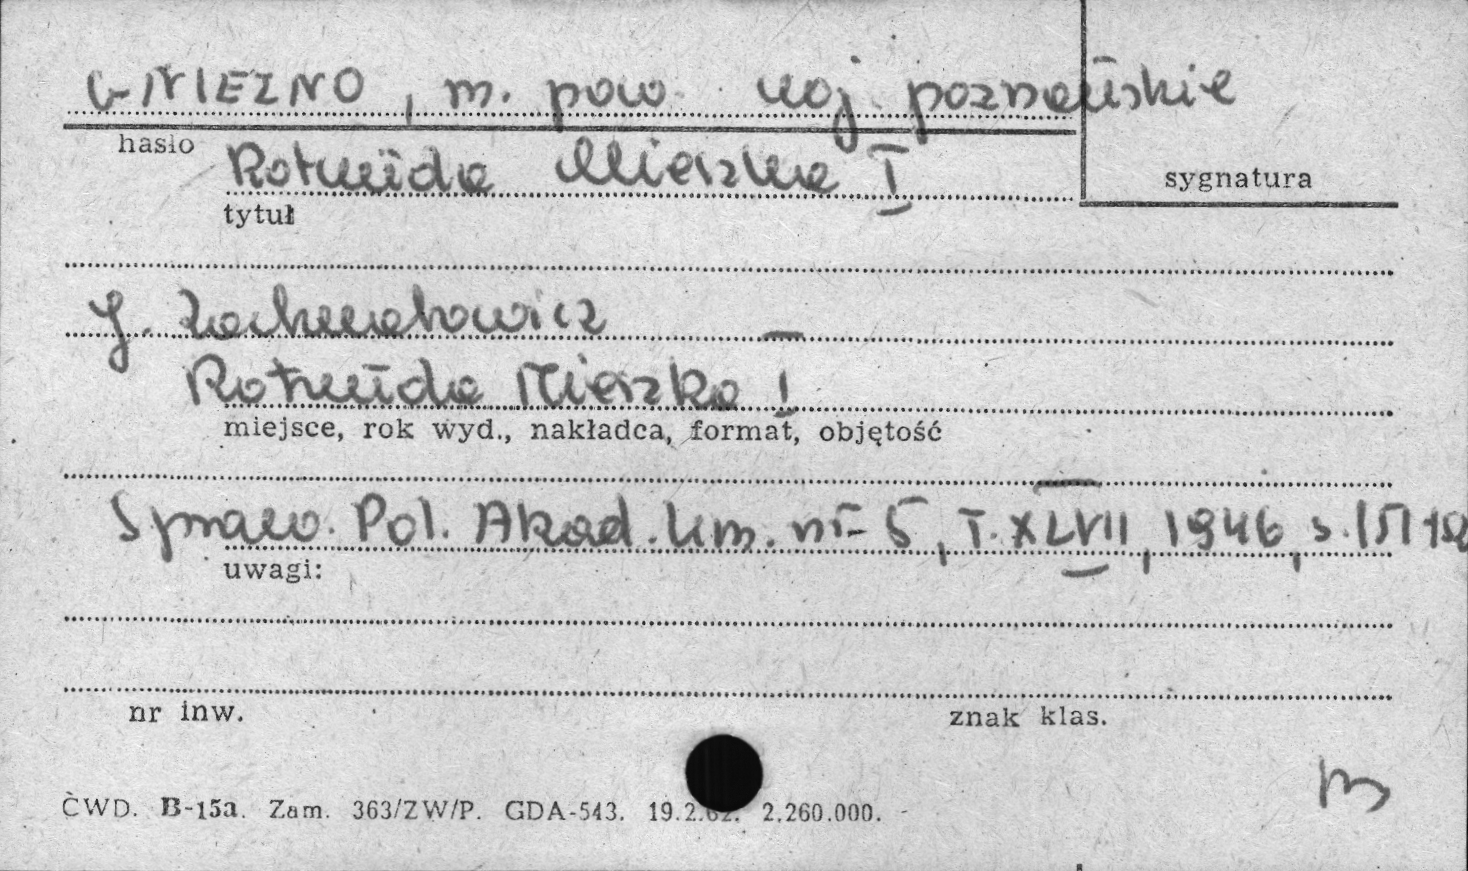 GNIEZNO, m. pow. woj. poznańskie
hasło
Rotunda Mieszka I
sygnatura
tytuł
J. Zachwatowicz –
Rotunda Mieszka I
miejsce, rok wyd., nakładca, format, objętość
Spraw. Pol. Akad. Um. nr 5, T. XLVII, 1946, s.
uwagi:
nr inw.
znak klas.
CWD. B-15a. Zam. 363/ZW/P. GDA-543. 19.2.62. 2.260.000.